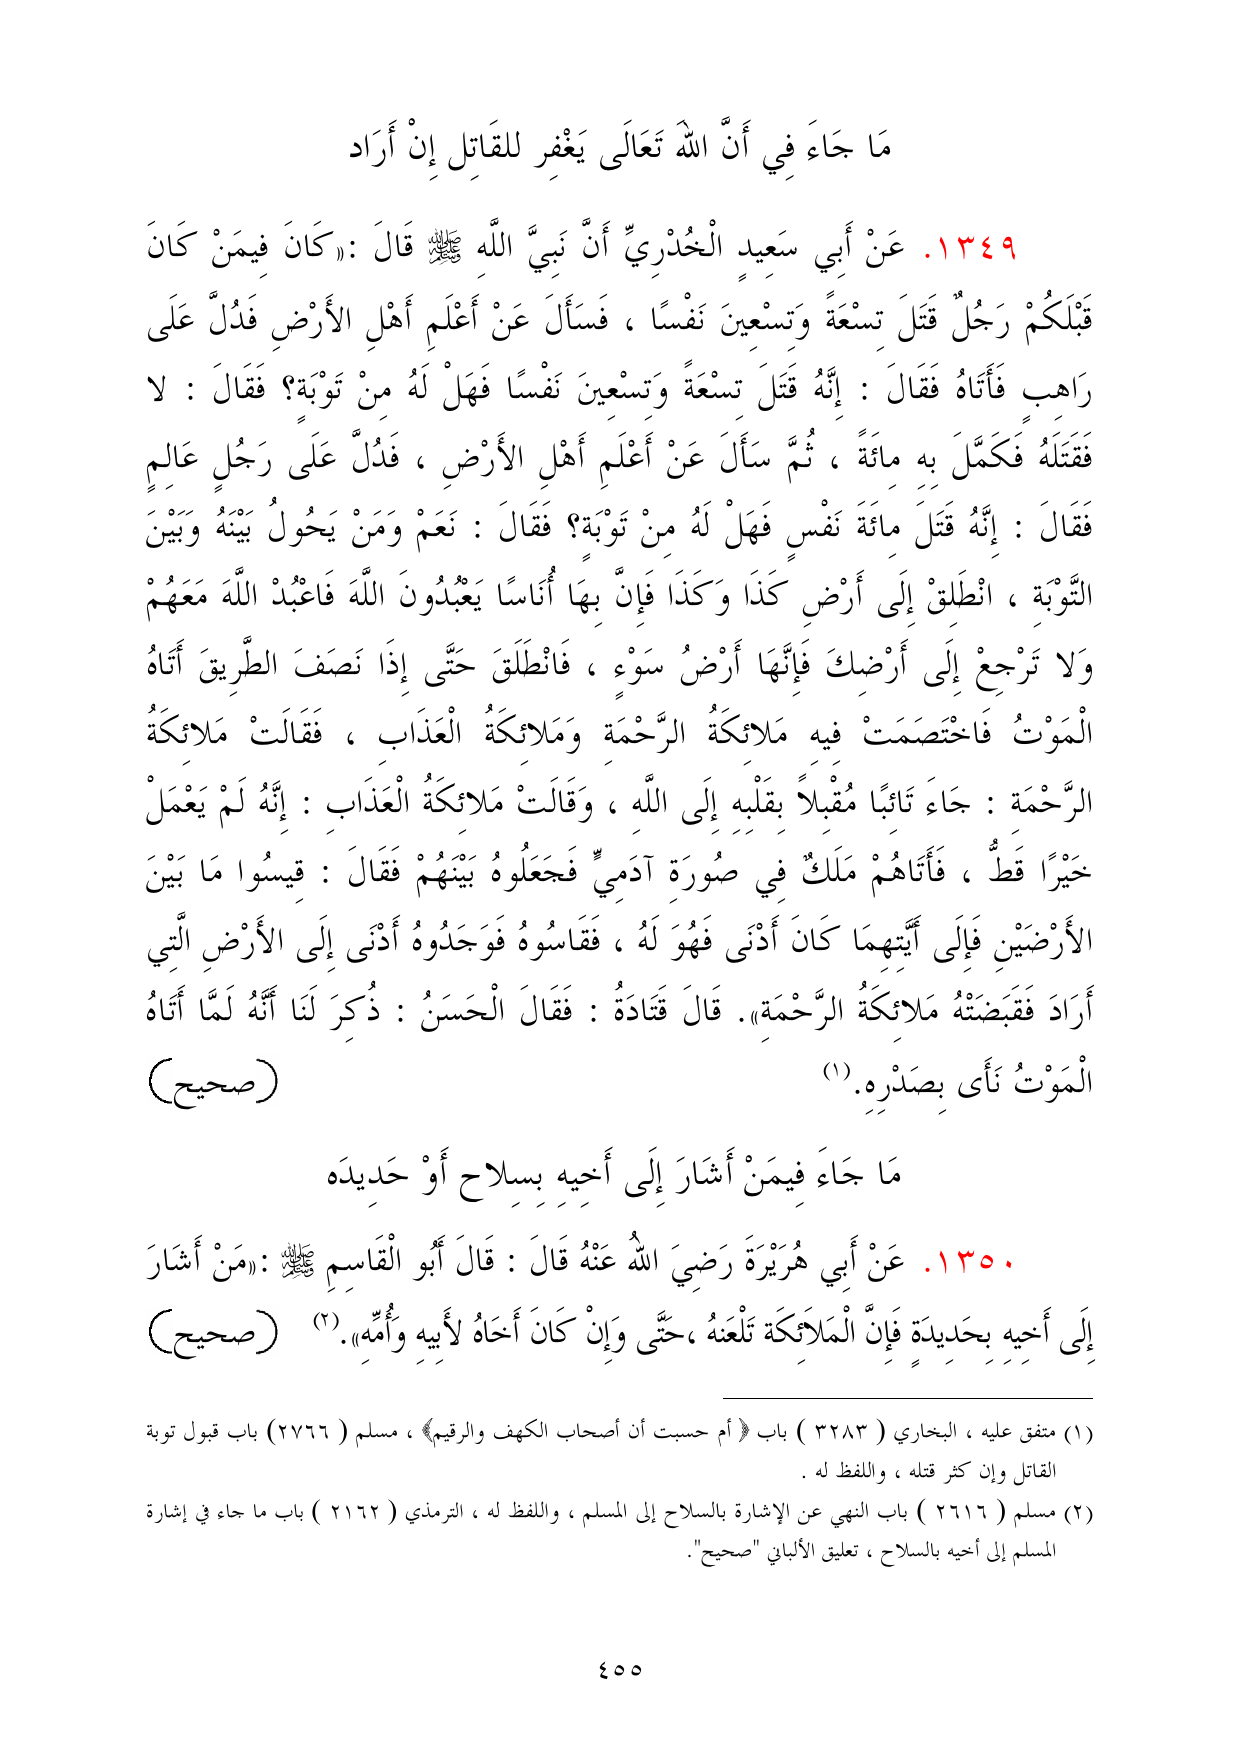 مَا جَاءَ فِي أَنَّ اللهَ تَعَالَى يَغْفِر للقَاتِل إِنْ أَرَاد
١٣٤٩. عَنْ أَبِي سَعِيدٍ الْخُدْرِيِّ أَنَّ نَبِيَّ اللَّهِ ﷺ قَالَ :«كَانَ فِيمَنْ كَانَ
قَبْلَكُمْ رَجُلٌ قَتَلَ تِسْعَةً وَتِسْعِينَ نَفْسًا ، فَسَأَلَ عَنْ أَعْلَمِ أَهْلِ الأَرْضِ فَدُلَّ عَلَى
رَاهِبٍ فَأَتَاهُ فَقَالَ : إِنَّهُ قَتَلَ تِسْعَةً وَتِسْعِينَ نَفْسًا فَهَلْ لَهُ مِنْ تَوْبَةٍ؟ فَقَالَ : لا
فَقَتَلَهُ فَكَمَّلَ بِهِ مِائَةً ، ثُمَّ سَأَلَ عَنْ أَعْلَمِ أَهْلِ الأَرْضِ ، فَدُلَّ عَلَى رَجُلٍ عَالِمٍ
فَقَالَ : إِنَّهُ قَتَلَ مِائَةَ نَفْسٍ فَهَلْ لَهُ مِنْ تَوْبَةٍ؟ فَقَالَ : نَعَمْ وَمَنْ يَحُولُ بَيْنَهُ وَبَيْنَ
التَّوْبَةِ ، انْطَلِقْ إِلَى أَرْضِ كَذَا وَكَذَا فَإِنَّ بِهَا أُنَاسًا يَعْبُدُونَ اللَّهَ فَاعْبُدْ اللَّهَ مَعَهُمْ
وَلا تَرْجِعْ إِلَى أَرْضِكَ فَإِنَّهَا أَرْضُ سَوْءٍ ، فَانْطَلَقَ حَتَّى إِذَا نَصَفَ الطَّرِيقَ أَتَاهُ
الْمَوْتُ فَاخْتَصَمَتْ فِيهِ مَلائِكَةُ الرَّحْمَةِ وَمَلائِكَةُ الْعَذَابِ ، فَقَالَتْ مَلائِكَةُ
الرَّحْمَةِ : جَاءَ تَائِبًا مُقْبِلاً بِقَلْبِهِ إِلَى اللَّهِ ، وَقَالَتْ مَلائِكَةُ الْعَذَابِ : إِنَّهُ لَمْ يَعْمَلْ
خَيْرًا قَطُّ ، فَأَتَاهُمْ مَلَكٌ فِي صُورَةِ آدَمِيٍّ فَجَعَلُوهُ بَيْنَهُمْ فَقَالَ : قِيسُوا مَا بَيْنَ
الأَرْضَيْنِ فَإِلَى أَيَّتِهِمَا كَانَ أَدْنَى فَهُوَ لَهُ ، فَقَاسُوهُ فَوَجَدُوهُ أَدْنَى إِلَى الأَرْضِ الَّتِي
أَرَادَ فَقَبَضَتْهُ مَلائِكَةُ الرَّحْمَةِ». قَالَ قَتَادَةُ : فَقَالَ الْحَسَنُ : ذُكِرَ لَنَا أَنَّهُ لَمَّا أَتَاهُ
الْمَوْتُ نَأَى بِصَدْرِهِ.(١) (صحيح)
مَا جَاءَ فِيمَنْ أَشَارَ إِلَى أَخِيهِ بِسِلاح أَوْ حَدِيدَه
١٣٥٠. عَنْ أَبِي هُرَيْرَةَ رَضِيَ اللهُ عَنْهُ قَالَ : قَالَ أَبُو الْقَاسِمِ ﷺ :«مَنْ أَشَارَ
إِلَى أَخِيهِ بِحَدِيدَةٍ فَإِنَّ الْمَلاَئِكَة تَلْعَنهُ ،حَتَّى وَإِنْ كَانَ أَخَاهُ لأَبِيهِ وَأُمِّهِ».(٢) (صحيح)
(١) متفق عليه ، البخاري ( ٣٢٨٣ ) باب ﴿ أم حسبت أن أصحاب الكهف والرقيم﴾ ، مسلم ( ٢٧٦٦) باب قبول توبة
القاتل وإن كثر قتله ، واللفظ له .
(٢) مسلم ( ٢٦١٦ ) باب النهي عن الإشارة بالسلاح إلى المسلم ، واللفظ له ، الترمذي ( ٢١٦٢ ) باب ما جاء في إشارة
المسلم إلى أخيه بالسلاح ، تعليق الألباني "صحيح".
٤٥٥